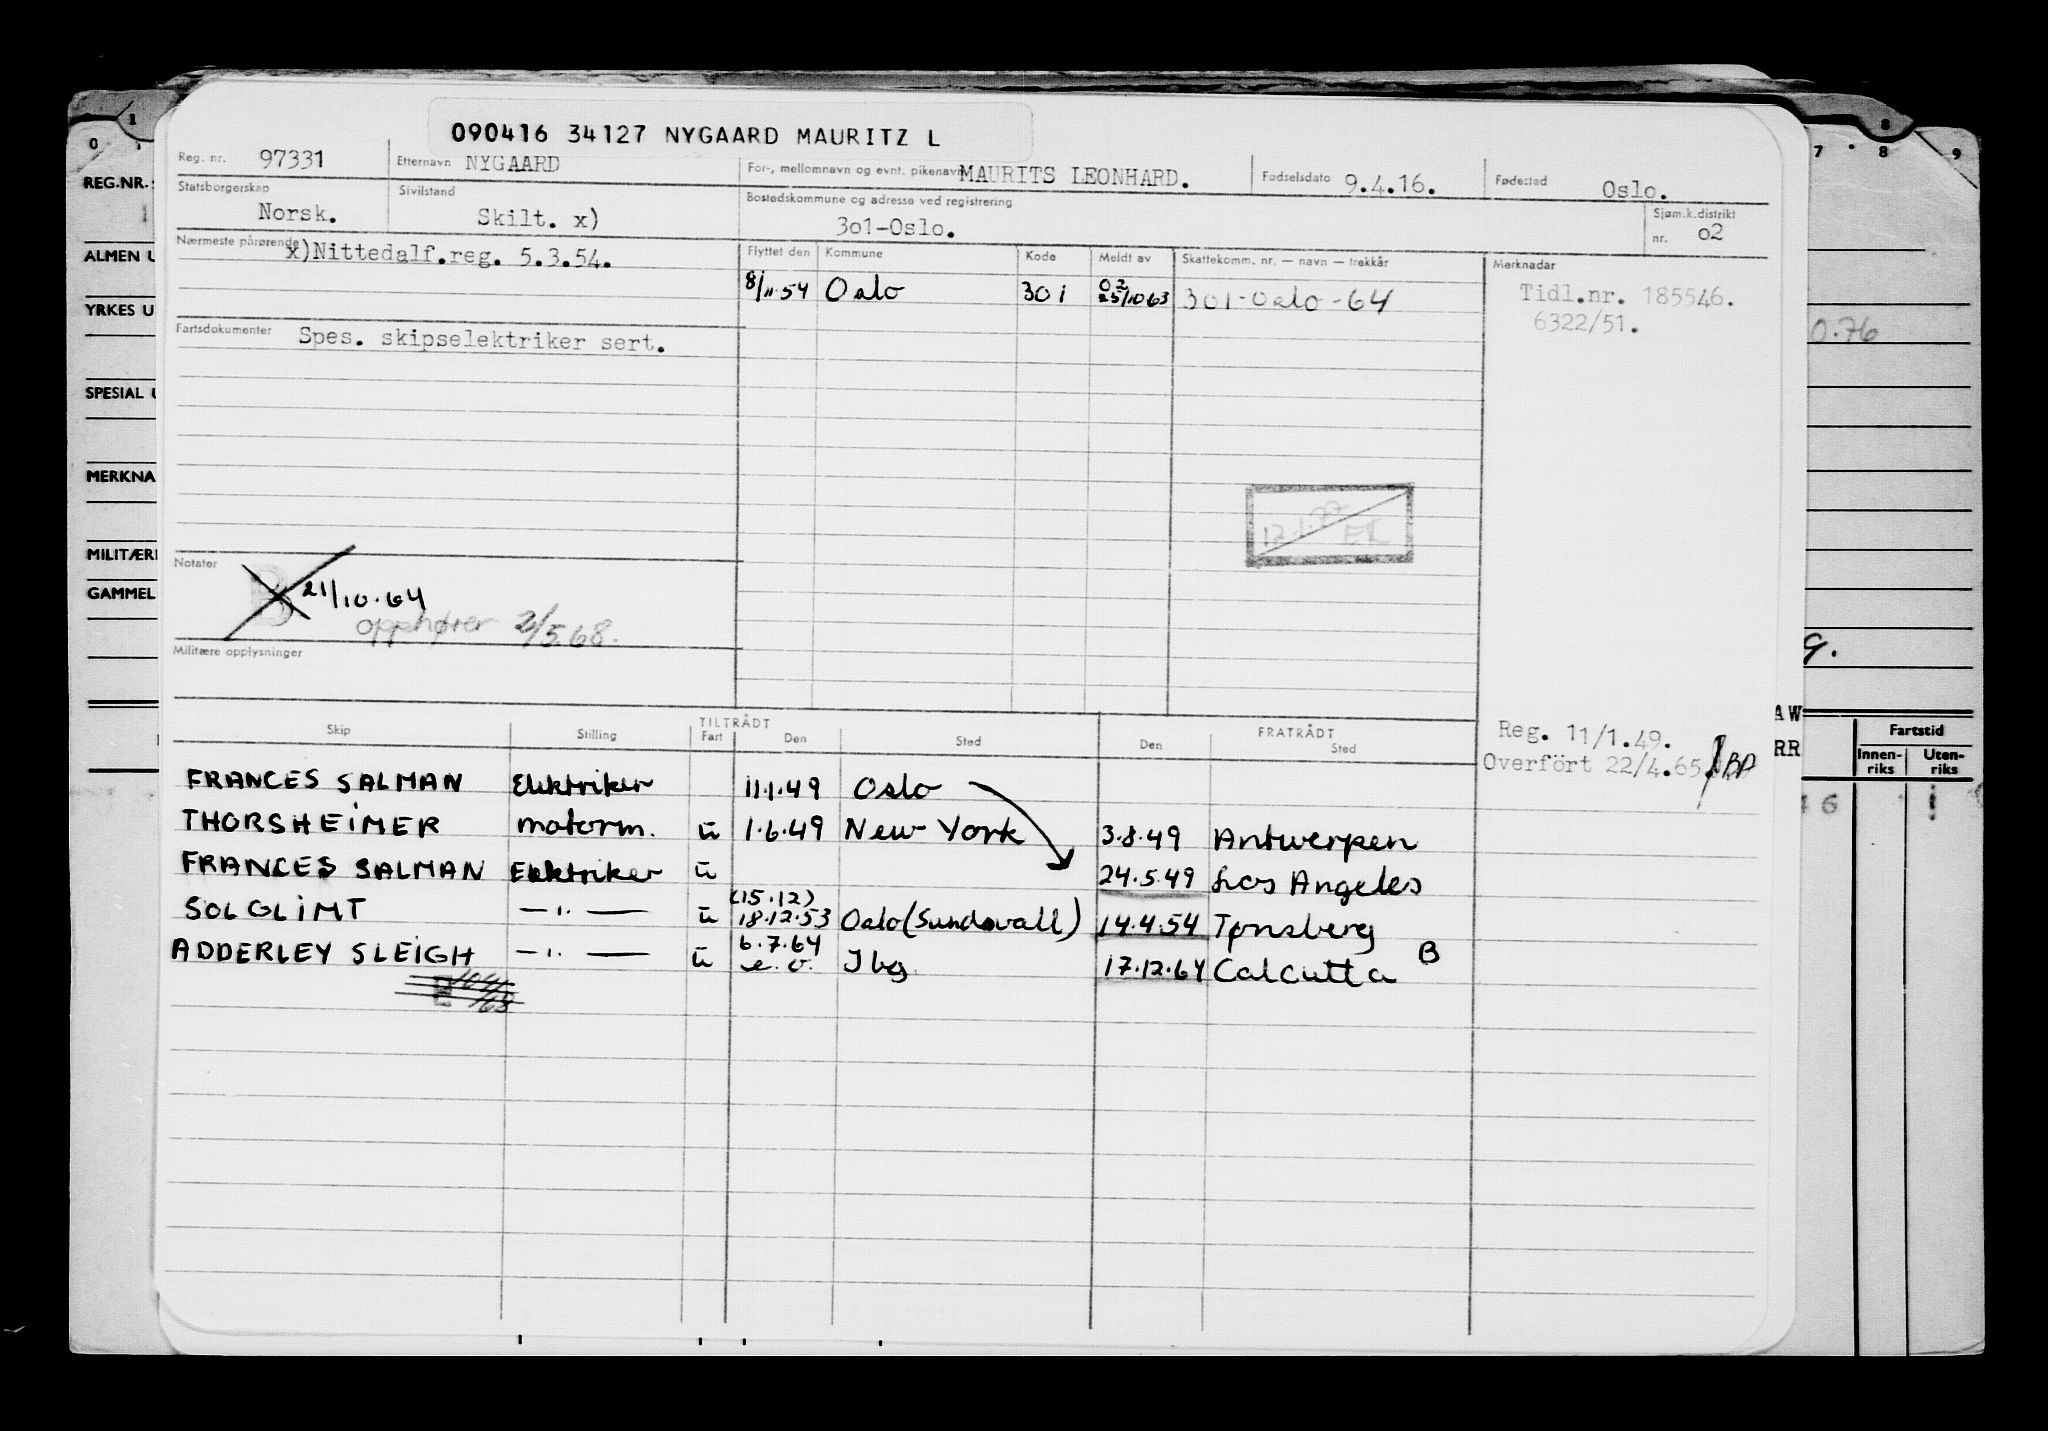 090416 34127 NYGAARD MAURITZ L
Reg. nr. 97331 Etternavn NYGAARD For-, mellomnavn og evnt. pikenavn MAURITS LEONHARD. Fødselsdato 9.4.16. Fødested Oslo.
Statsborgerskap Norsk. Sivilstand Skilt. x) Bostedskommune og adresse ved registrering 301-Oslo. Sjøm.k.distrikt nr. 02
Nærmeste pårørende x)Nittedalf.reg. 5.3.54.
Flyttet den Kommune Kode Meldt av Skattekomm. nr. — navn — trekkår Merknader
8/11.54 Oslo 301 02 25/10 63 301-Oslo-64
Tidl.nr. 185546.
6322/51.
Fartsdokumenter Spes. skipselektriker sert.
Notater
21/10.64
opphører 2/5.68.
Militære opplysninger
Skip Stilling TILTRÅDT Fart Den Sted FRATRÅDT Den Sted
Reg. 11/1.49.
Overfört 22/4.65. BA
FRANCES SALMAN Elektriker 11.1.49 Oslo
THORSHEIMER motorm. u 1.6.49 New York 3.8.49 Antwerpen
FRANCES SALMAN Elektriker u 24.5.49 Los Angeles
SOLGLIMT —"— u (15.12) 18.12.53 Oslo (Sundsvall) 14.4.54 Tønsberg
ADDERLEY SLEIGH —"— u 6.7.64 e.o. Jbg 17.12.64 Calcutta B
0 1
REG.NR.
ALMEN U
YRKES U
SPESIAL U
MERKNA
MILITÆRE
GAMMEL
7 8 8 9
0.76
g.
AW
RR
Fartstid
Innen-riks Uten-riks